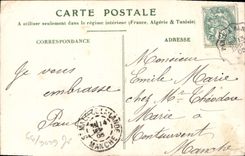 CARTE POSTALE
A utiliser seulement dans le régime intérieur (France, Algérie & Tunisie)
CORRESPONDANCE
ADRESSE
Je vous
embrasse
Paul
Monsieur
Emile Marie
chez Mr Théodore
Marie à
Montsurvent
Manche
MANCHE